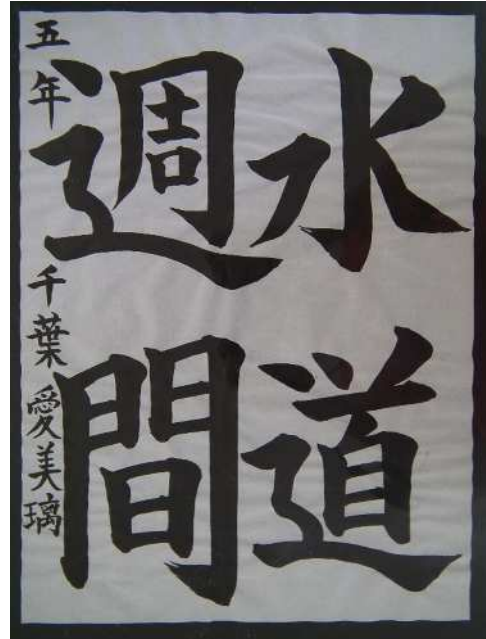 水道
週間
五年 千葉愛美璃